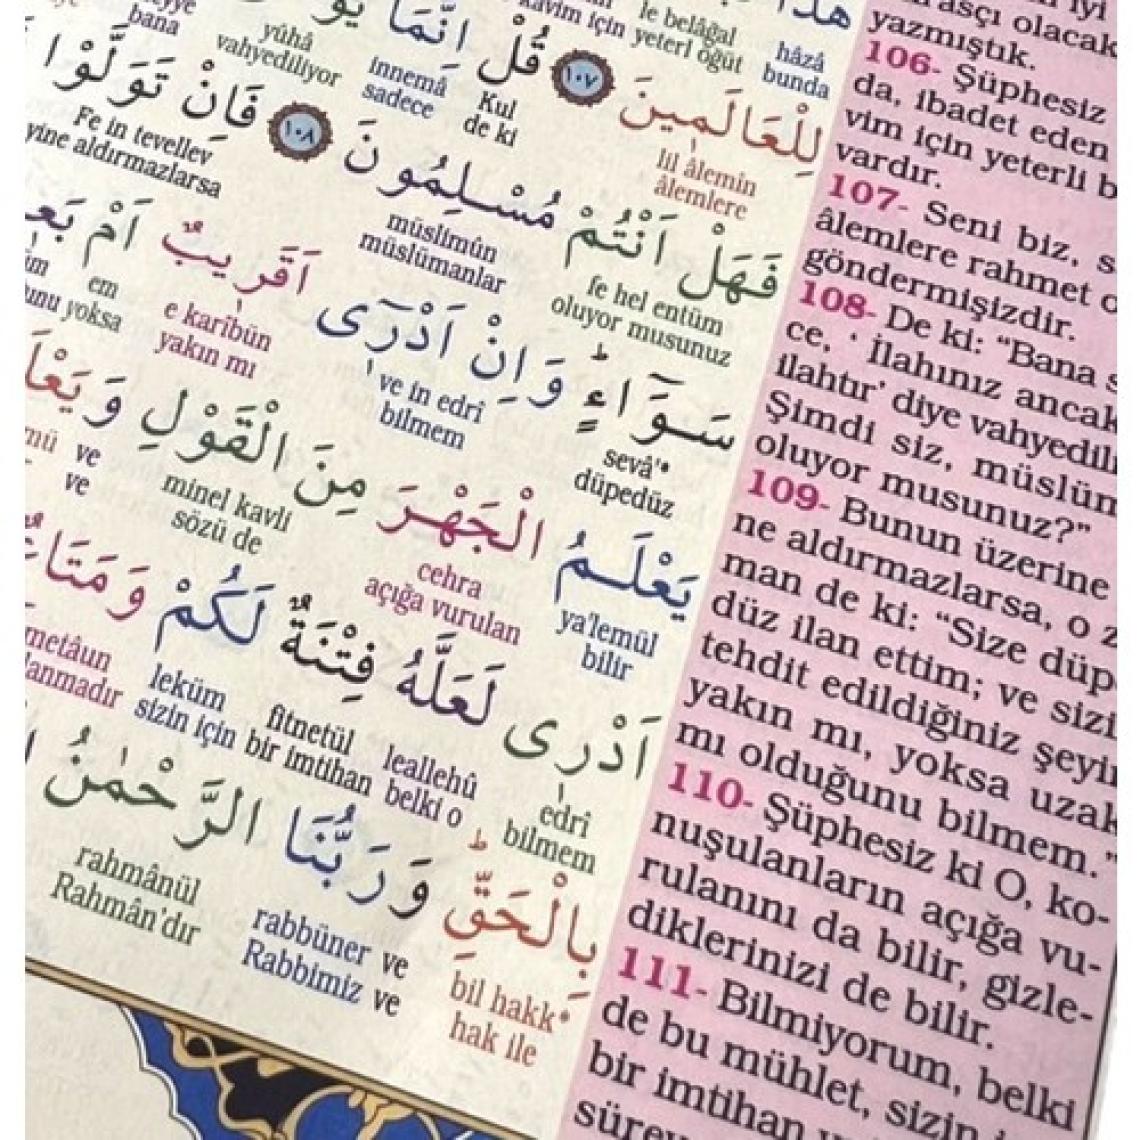 هذا
hâzâ
bunda
le belâğal
yeterl öğüt
kavim için
لِلْعَالَمِينَ ١٠٧ قُلْ اِنَّمَا
lil âlemîn
âlemlere
Kul
de ki
innemâ
sadece
yûhâ
vahyediliyor
bana
فَهَلْ اَنْتُمْ مُسْلِمُونَ ١٠٨ فَاِنْ تَوَلَّوْا
fe hel entüm
oluyor musunuz
müslimûn
müslümanlar
Fe in tevellev
yine aldırmazlarsa
سَوَٓاءٍ وَاِنْ اَدْرٓى اَقَرِيبٌ اَمْ
sevâ'*
düpedüz
ve in edrî
bilmem
e karîbün
yakın mı
em
yoksa
يَعْلَمُ الْجَهْرَ مِنَ الْقَوْلِ وَ
ya'lemül
bilir
cehra
açığa vurulan
minel kavli
sözü de
ve
ve
اَدْرٓى لَعَلَّهُ فِتْنَةٌ لَكُمْ وَمَتَاعٌ
edrî
bilmem
leallehû
belki o
fitnetül
bir imtihan
leküm
sizin için
metâun
بِالْحَقِّ وَرَبُّنَا الرَّحْمٰنُ
bil hakk*
hak ile
rabbüner ve
Rabbimiz ve
rahmânül
Rahmân'dır
olacak
yazmıştık.
106- Şüphesiz
da, ibadet eden
vim için yeterli
vardır.
107- Seni biz,
âlemlere rahmet
göndermişizdir.
108- De ki: “Bana
ce, ' İlahınız ancak
ilahtır' diye
Şimdi siz,
oluyor musunuz?”
109- Bunun üzerine
ne aldırmazlarsa, o
man de ki: “Size
düz ilan ettim; ve
tehdit edildiğiniz
yakın mı, yoksa
mı olduğunu bilmem.”
110- Şüphesiz ki O, ko-
nuşulanların açığa vu-
rulanını da bilir, gizle-
diklerinizi de bilir.
111- Bilmiyorum, belki
de bu mühlet, sizin
bir imtihan